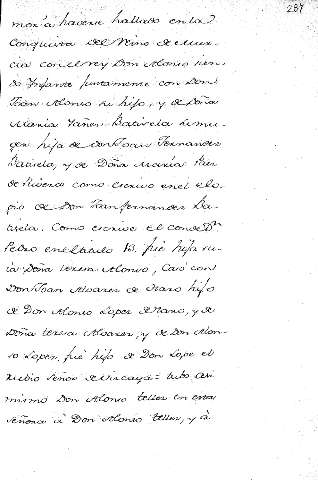 287
moria haverse hallado en la
Conquista del Reino de Mur-
cia con el rey Don Alonso sien-
do Ynfante juntamente con Don
Joan Alonso su hijo, y de Doña
Maria Yañez Batisela su mu-
ger hija de Don Joan Fernandez
Batisela, y de Doña Maria Ruz
de Rivera como escrivo en el elo-
gio de Don Joan fernandez Ba-
tisela. Como escrive el conde Dn
Pedro en el titulo 13. fué hija su-
ia Doña teresa Alonso, Casó con
Don Joan Alvarez de Haro hijo
de Don Alonso Lopez de Haro, y de
Doña teresa Alvarez, y de Don Alon-
so Lopez, fué hijo de Don Lope el
rubio Señor de Vizcaya = tubo asi
mismo Don Alonso tellez en esta
Señora à Don Alonso tellez, y à